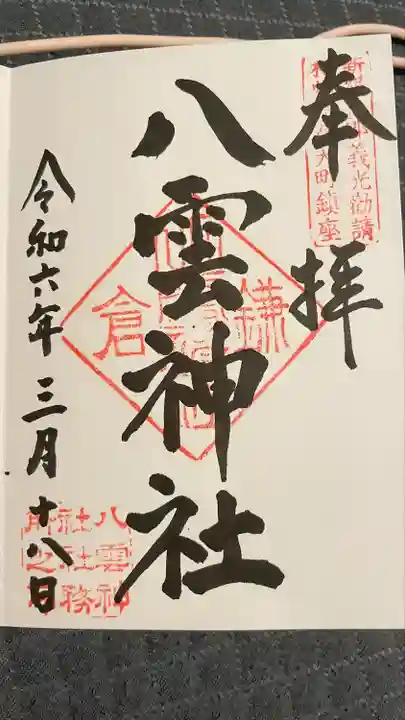 奉拝
新羅三郎義光勧請
相州鎌倉大町鎮座
八雲神社
鎌倉
令和六年三月十八日
八雲神
社社務
所之印